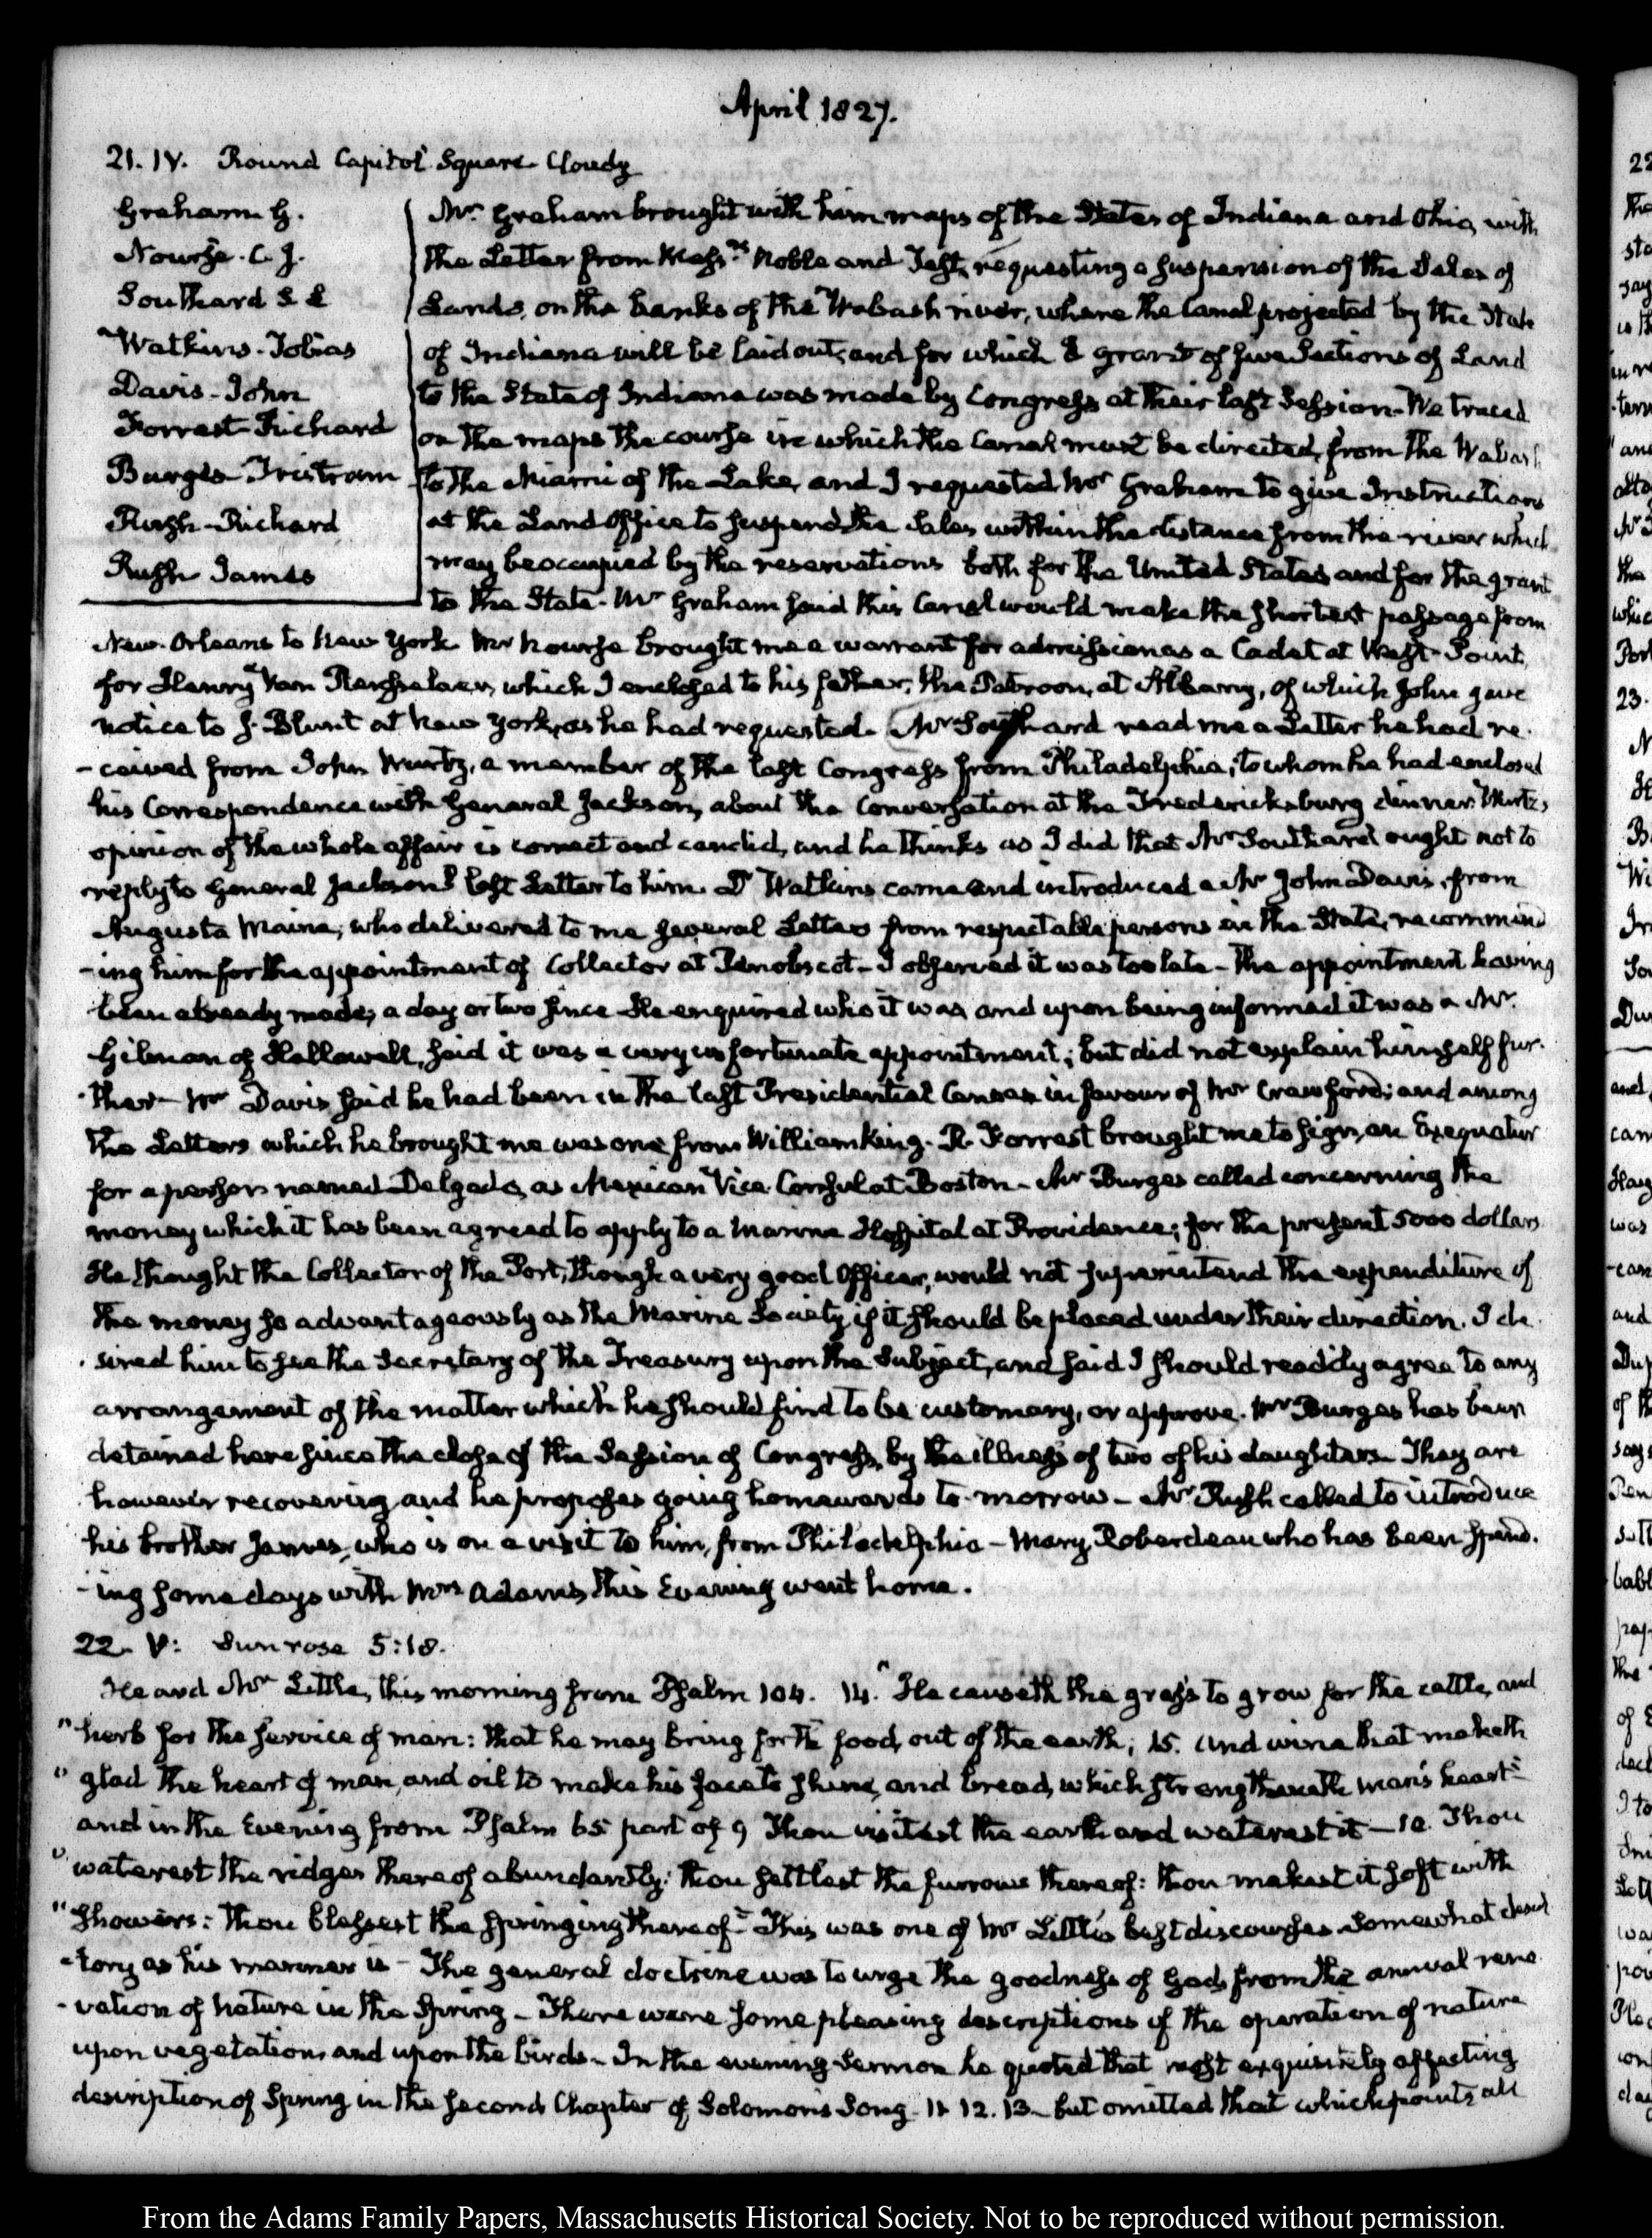 April 1827.
21. IV. Round Capitol Square. Cloudy
Graham. G.
Nourse. C. J.
Southard S. L
Watkins. Tobias
Davis. John
Forrest Richard
Burges. Tristram
Rush. Richard
Rush James
Mr. Graham brought with him maps of the States of Indiana and Ohio, with
the Letter from Messrs. Noble and Test, requesting a suspension of the Sales of
Lands, on the banks of the Wabash river, where the Canal projected by the State
of Indiana will be laid out, and for which a grant of five Sections of Land
to the State of Indiana was made by Congress at their last Session. We traced
on the maps the course in which the Canal must be directed, from the Wabash
to the Miami of the Lake, and I requested Mr. Graham to give Instructions
at the Land Office to suspend the Sales within the distance from the river which
may be occupied by the reservations both for the United States and for the grant
to the State. Mr Graham said this Canal would make the shortest passage from
New-Orleans to New York. Mr Nourse brought me a warrant for admission as a Cadet at West-Point,
for Henry Van Rensselaer, which I enclosed to his father, the Patroon, at Albany, of which John gave
notice to J. Blunt at New York, as he had requested. Mr Southard read me a Letter he had re-
-ceived from John Wurtz, a member of the last Congress from Philadelphia; to whom he had enclosed
his Correspondence with General Jackson, about the Conversation at the Fredericksburg dinner. Wurtz's
opinion of the whole affair is correct and candid, and he thinks as I did that Mr Southard ought not to
reply to General Jackson's last Letter to him. Dr Watkins came and introduced a Mr John Davis, from
Augusta Maine, who delivered to me several Letters from respectable persons in the State, recommend
-ing him for the appointment of Collector at Penobscot - I observed it was too late - The appointment having
been already made, a day or two since. He enquired who it was, and upon being informed it was a Mr.
Gilman of Hallowell, said it was a very unfortunate appointment; but did not explain himself fur-
-ther - Mr Davis said he had been in the last Presidential Canvas in favour of Mr Crawford; and among
the Letters which he brought me was one from William King. R. Forrest brought me to sign, an Exequatur
for a person named Delgado, as Mexican Vice-Consul at Boston - Mr Burges called concerning the
money which it has been agreed to apply to a Marine Hospital at Providence; for the present 5000 dollars
He thought the Collector of the Port, though a very good Officer, would not superintend the expenditure of
the money so advantageously as the Marine Society if it should be placed under their direction. I de-
-sired him to see the Secretary of the Treasury upon the subject, and said I should readily agree to any
arrangement of the matter which he should find to be customary, or approve. Mr Burges has been
detained here since the close of the Session of Congress, by the illness of two of his daughters. They are
however recovering and he proposes going homewards to-morrow - Mr Rush called to introduce
his brother James, who is on a visit to him, from Philadelphia - Mary Roberdeau who has been spend-
-ing some days with Mrs Adams this Evening went home.
22. V: Sun rose 5:18.
Heard Mr Little, this morning from Psalm 104. 14. "He causeth the grass to grow for the cattle, and
"herb for the service of man: that he may bring forth food out of the earth; 15. And wine that maketh
"glad the heart of man, and oil to make his face to shine, and bread, which strengtheneth man's heart"
and in the Evening from Psalm 65 part of 9 Thou visitest the earth and waterest it - 10. Thou
"waterest the ridges thereof abundantly: thou settlest the furrows thereof: thou makest it soft with
"showers: thou blessest the springing thereof" This was one of Mr Little's best discourses. Somewhat desul
-tory as his manner is - The general doctrine was to urge the goodness of God, from the annual reno
-vation of nature in the Spring - There were some pleasing descriptions of the operation of nature
upon vegetation, and upon the birds - In the evening Sermon he quoted that most exquisitely affecting
description of Spring in the second Chapter of Solomon's Song. 11. 12. 13 - but omitted that which points all
From the Adams Family Papers, Massachusetts Historical Society. Not to be reproduced without permission.